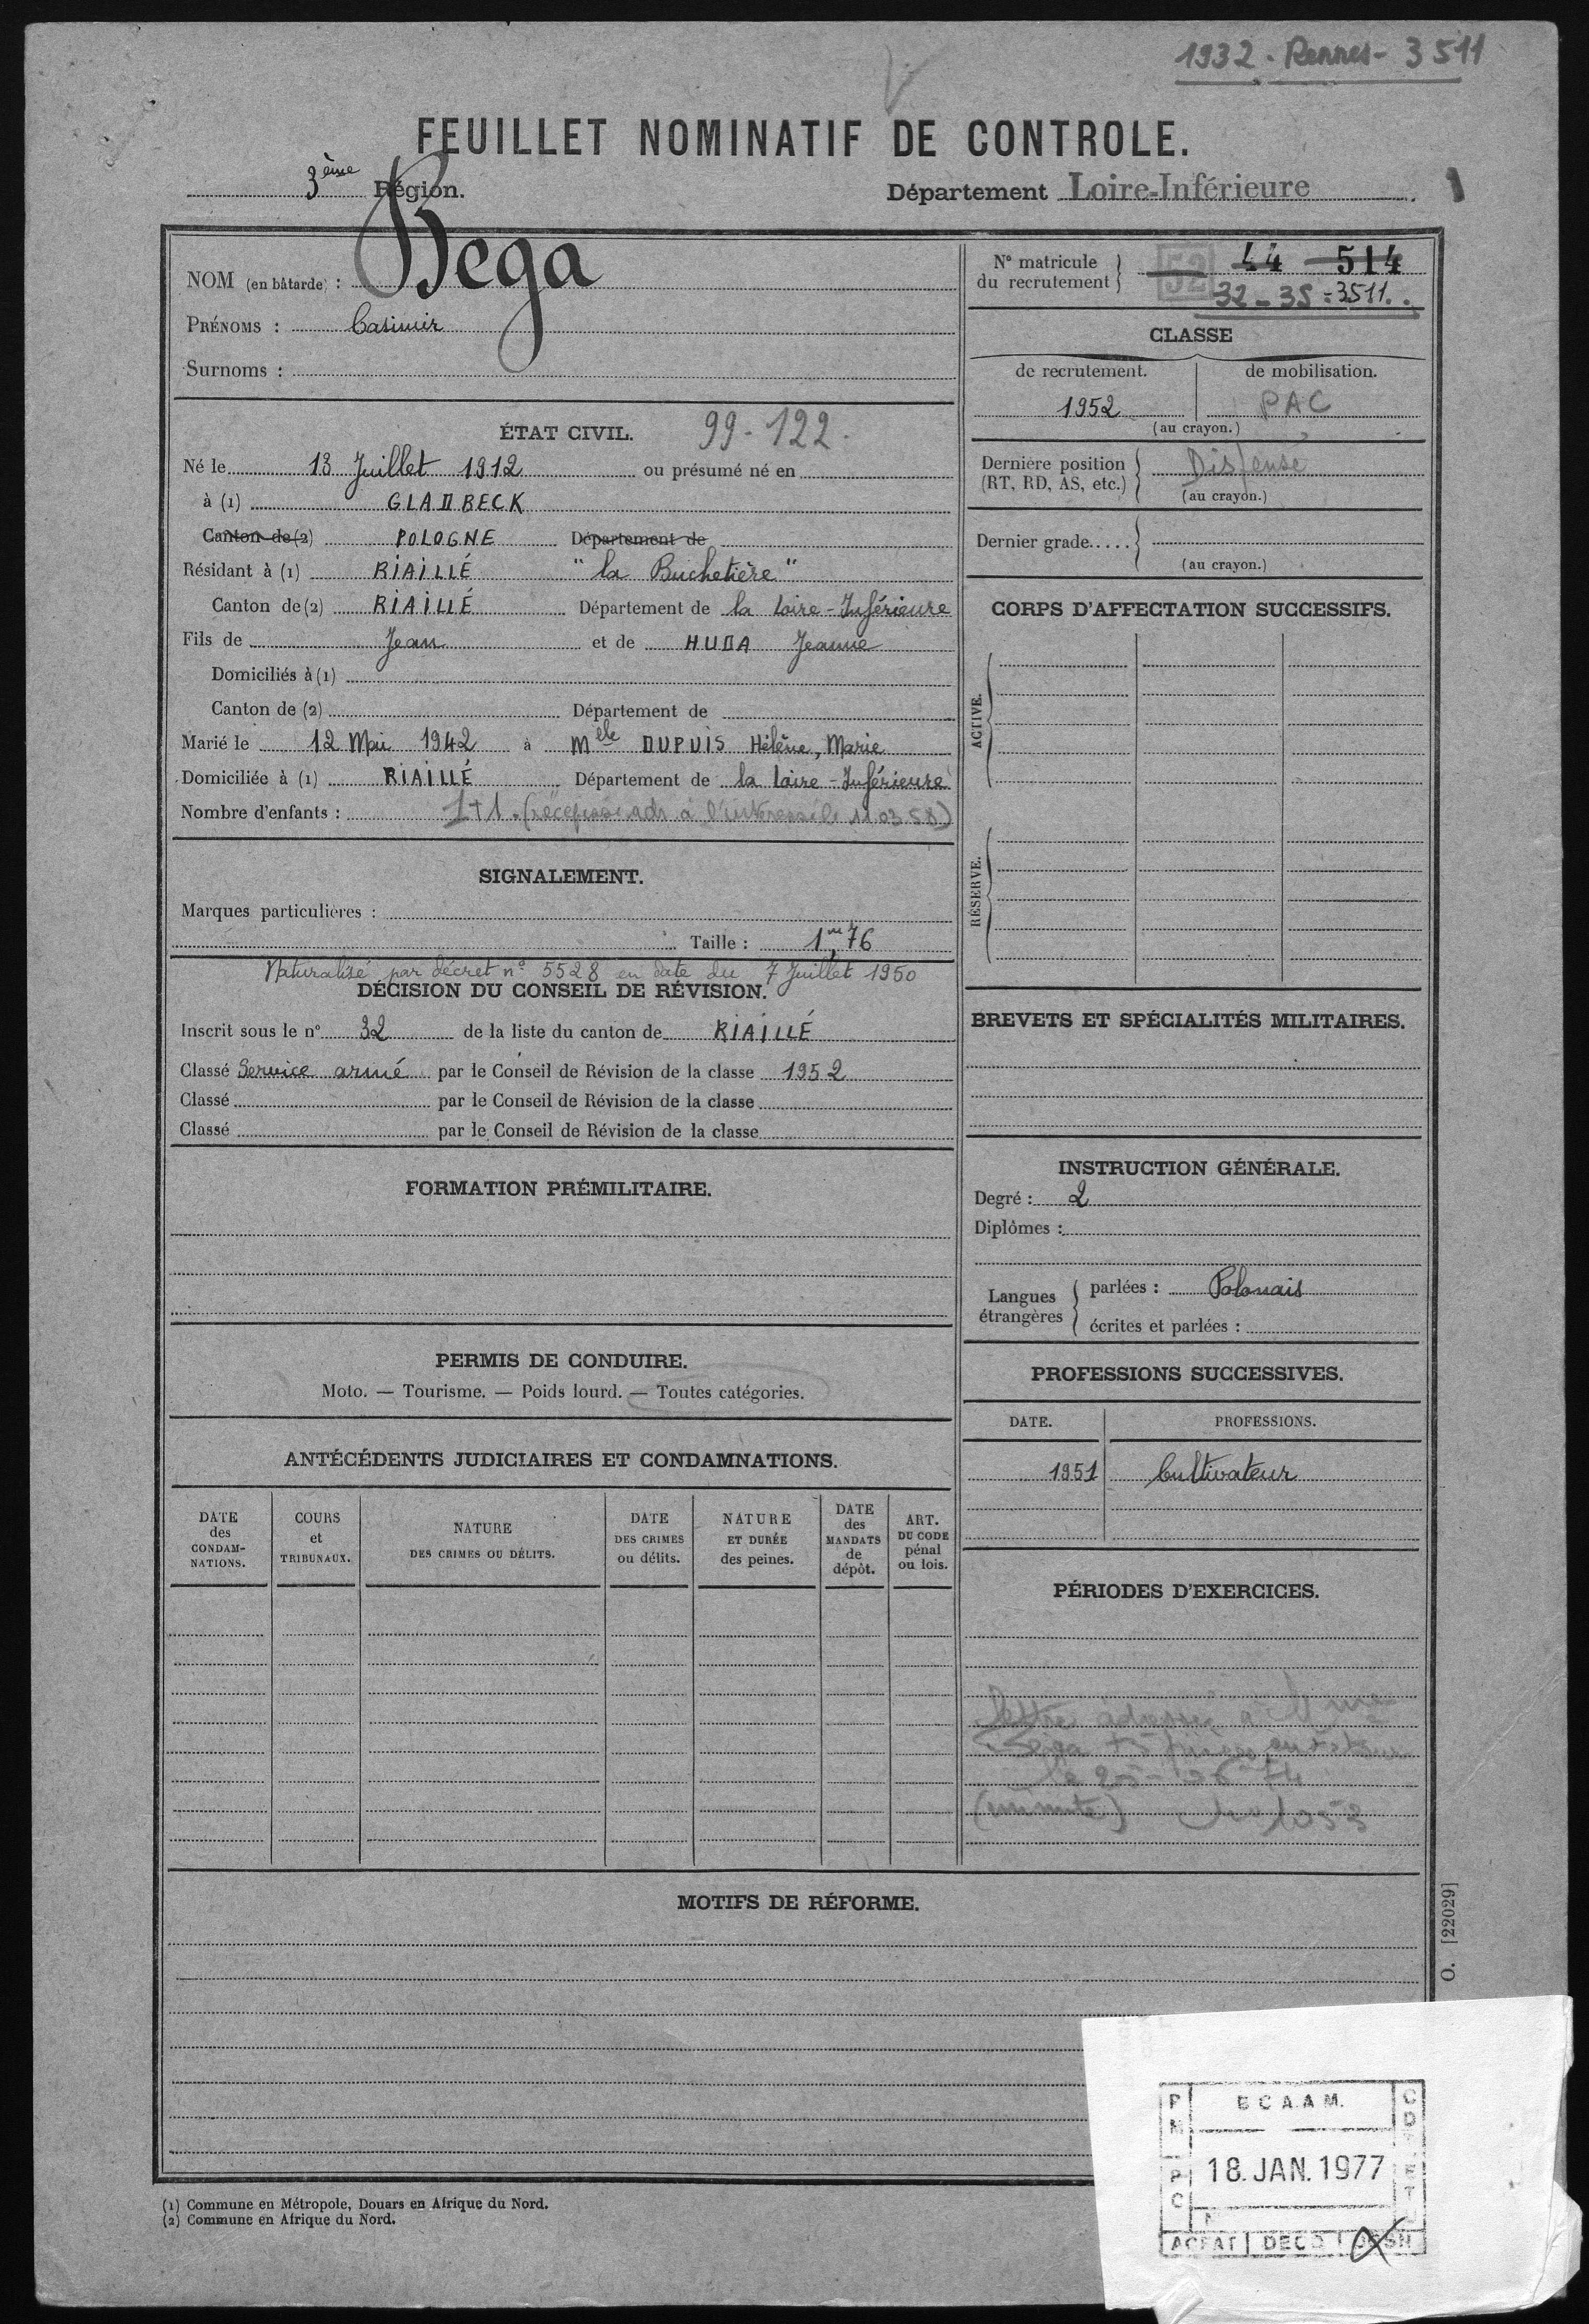 1932 - Rennes - 3511
FEUILLET NOMINATIF DE CONTROLE.
3ème Région.
Département Loire-Inférieure
NOM (en bâtarde) : Bega
PRÉNOMS : Casimir
Surnoms :
ÉTAT CIVIL. 99-122-
Né le 13 Juillet 1912 ou présumé né en
à (1) GLADBECK
Canton de (2) POLOGNE Département de
Résidant à (1) RIAILLÉ "la Buchetière"
Canton de (2) RIAILLÉ Département de la Loire-Inférieure
Fils de Jean et de HUDA Jeanne
Domiciliés à (1)
Canton de (2) Département de
Marié le 12 Mai 1942 à Melle DUPUIS Hélène, Marie
Domiciliée à (1) RIAILLÉ Département de la Loire-Inférieure
Nombre d'enfants : 1+1. (récépissé adr à l'intéressé le 11 03 58)
SIGNALEMENT.
Marques particulières :
Taille : 1m,76
Naturalisé par décret n° 5528 en date du 7 Juillet 1950
DÉCISION DU CONSEIL DE RÉVISION.
Inscrit sous le n° 32 de la liste du canton de RIAILLÉ
Classé Service armé par le Conseil de Révision de la classe 1952
Classé par le Conseil de Révision de la classe
Classé par le Conseil de Révision de la classe
FORMATION PRÉMILITAIRE.
PERMIS DE CONDUIRE.
Moto. — Tourisme. — Poids lourd. — Toutes catégories.
ANTÉCÉDENTS JUDICIAIRES ET CONDAMNATIONS.
DATE des CONDAM-NATIONS.
COURS et TRIBUNAUX.
NATURE DES CRIMES OU DÉLITS.
DATE DES CRIMES ou délits.
NATURE ET DURÉE des peines.
DATE des MANDATS de dépôt.
ART. DU CODE pénal ou lois.
N° matricule du recrutement } 52 44 514
32 - 35 = 3511..
CLASSE
de recrutement. de mobilisation.
1952 PAC
(au crayon.)
Dernière position (RT, RD, AS, etc.) } Dispensé
(au crayon.)
Dernier grade.....
(au crayon.)
CORPS D'AFFECTATION SUCCESSIFS.
ACTIVE.
RÉSERVE.
BREVETS ET SPÉCIALITÉS MILITAIRES.
INSTRUCTION GÉNÉRALE.
Degré : 2
Diplômes :
Langues étrangères { parlées : Polonais
écrites et parlées :
PROFESSIONS SUCCESSIVES.
DATE. PROFESSIONS.
1951 Cultivateur
PÉRIODES D'EXERCICES.
lettre adressée à Mme
Bega
(minute)
MOTIFS DE RÉFORME.
O. [22029]
(1) Commune en Métropole, Douars en Afrique du Nord.
(2) Commune en Afrique du Nord.
B C A A M.
18. JAN. 1977